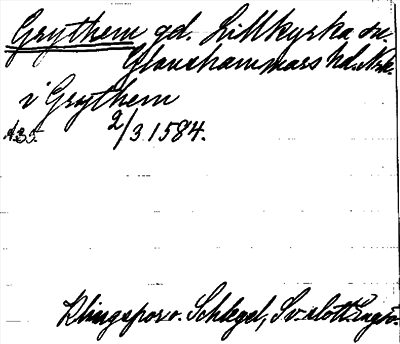 Grythem gd. Lillkyrka sn.
Glanshammars hd. Nrk.
i Grythem
A.35. 2/3 1584.
Klingspor o. Schlegel, Sv. slott